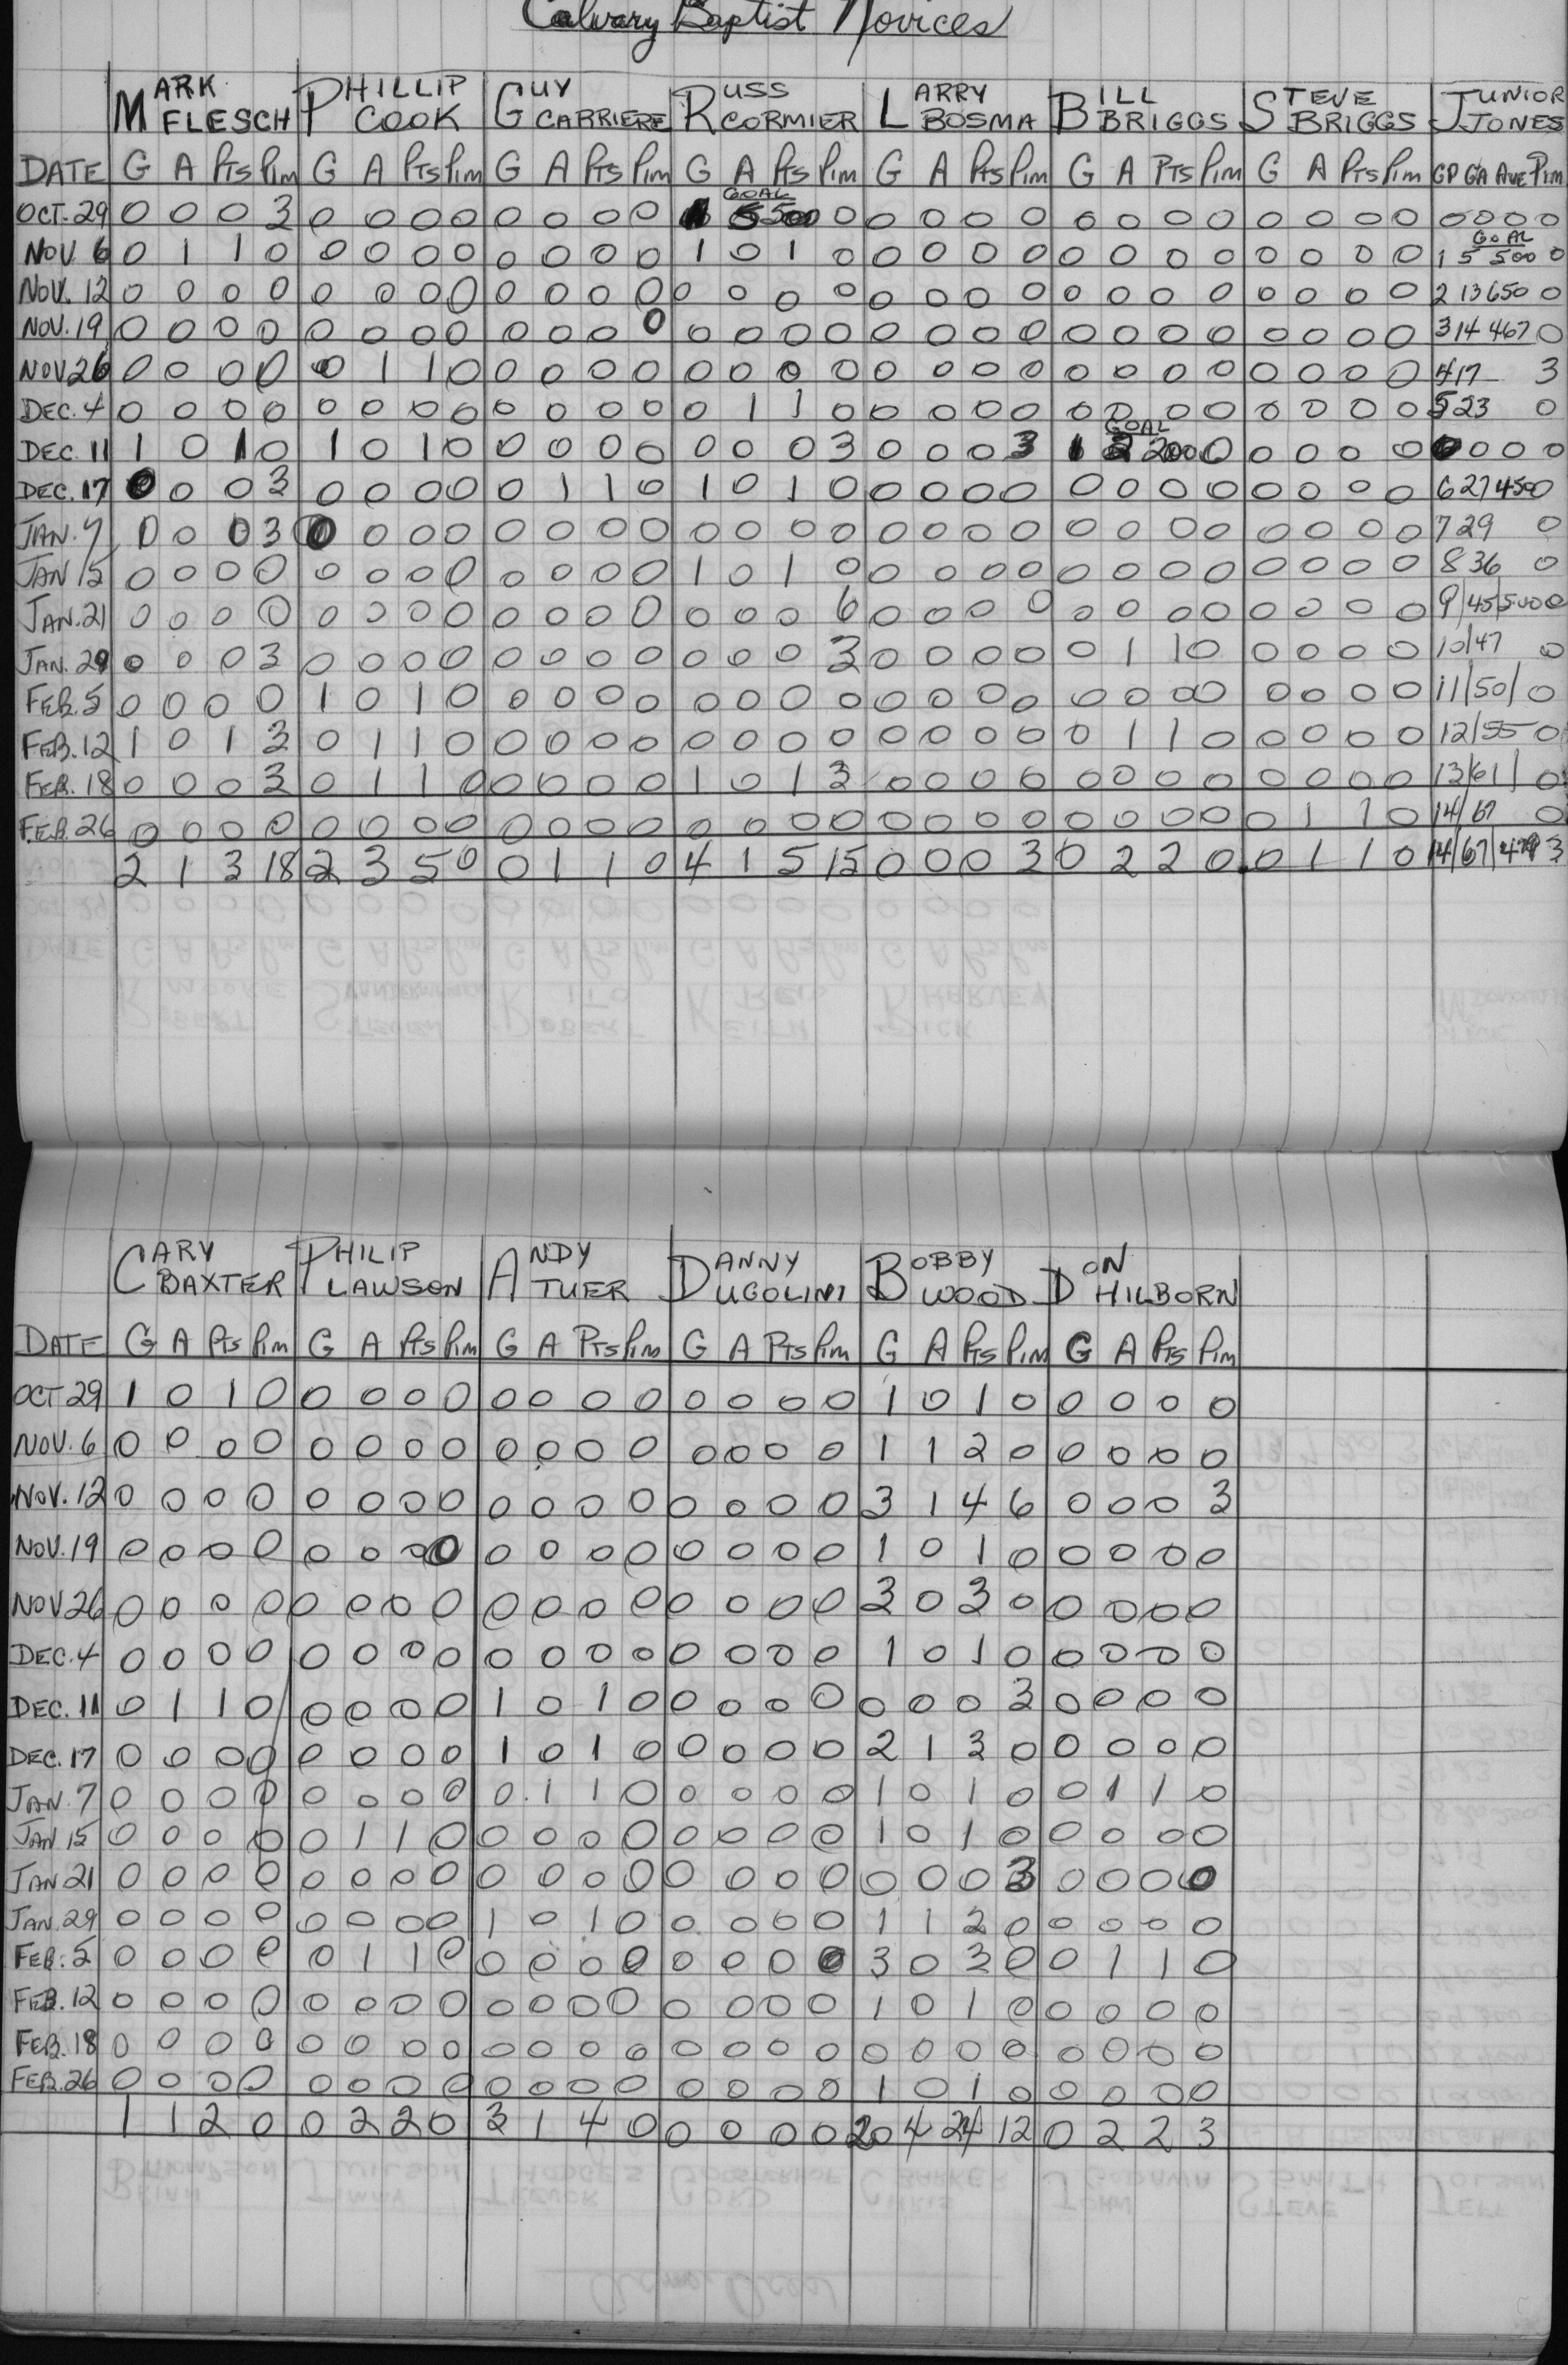 Calvary Baptist Novices
MARK FLESCH PHILLIP COOK GUY CARRIERE RUSS CORMIER LARRY BOSMA BILL BRIGGS STEVE BRIGGS JUNIOR JONES
DATE G A Pts Pim G A Pts Pim G A Pts Pim G A Pts Pim G A Pts Pim G A Pts Pim G A Pts Pim GP GA Ave Pim
OCT-29 0 0 0 3 0 0 0 0 0 0 0 0 1 GOAL 5 500 0 0 0 0 0 0 0 0 0 0 0 0 0 0 0 0 0
NOV 6 0 1 1 0 0 0 0 0 0 0 0 0 1 0 1 0 0 0 0 0 0 0 0 0 0 0 0 0 1 5 GOAL 500 0
NOV. 12 0 0 0 0 0 0 0 0 0 0 0 0 0 0 0 0 0 0 0 0 0 0 0 0 0 0 0 0 2 13 650 0
NOV. 19 0 0 0 0 0 0 0 0 0 0 0 0 0 0 0 0 0 0 0 0 0 0 0 0 0 0 0 0 3 14 467 0
NOV 26 0 0 0 0 0 1 1 0 0 0 0 0 0 0 0 0 0 0 0 0 0 0 0 0 0 0 0 0 4 17 3
DEC. 4 0 0 0 0 0 0 0 0 0 0 0 0 0 1 1 0 0 0 0 0 0 0 0 0 0 0 0 0 5 23 0
DEC. 11 1 0 1 0 1 0 1 0 0 0 0 0 0 0 0 3 0 0 0 3 1 GOAL 2 200 0 0 0 0 0 0 0 0 0
DEC. 17 0 0 0 3 0 0 0 0 0 1 1 0 1 0 1 0 0 0 0 0 0 0 0 0 0 0 0 0 6 27 450 0
JAN. 7 0 0 0 3 0 0 0 0 0 0 0 0 0 0 0 0 0 0 0 0 0 0 0 0 0 0 0 0 7 29 0
JAN 15 0 0 0 0 0 0 0 0 0 0 0 0 1 0 1 0 0 0 0 0 0 0 0 0 0 0 0 0 8 36 0
JAN. 21 0 0 0 0 0 0 0 0 0 0 0 0 0 0 0 6 0 0 0 0 0 0 0 0 0 0 0 0 9 45 500 0
JAN. 29 0 0 0 3 0 0 0 0 0 0 0 0 0 0 0 3 0 0 0 0 0 1 1 0 0 0 0 0 10 47 0
FEB. 5 0 0 0 0 1 0 1 0 0 0 0 0 0 0 0 0 0 0 0 0 0 0 0 0 0 0 0 0 11 50 0
FEB. 12 1 0 1 3 0 1 1 0 0 0 0 0 0 0 0 0 0 0 0 0 0 1 1 0 0 0 0 0 12 55 0
FEB. 18 0 0 0 3 0 1 1 0 0 0 0 0 1 0 1 3 0 0 0 0 0 0 0 0 0 0 0 0 13 61 0
FEB. 26 0 0 0 0 0 0 0 0 0 0 0 0 0 0 0 0 0 0 0 0 0 0 0 0 0 1 1 0 14 67 0
2 1 3 18 2 3 5 0 0 1 1 0 4 1 5 15 0 0 0 3 0 2 2 0 0 1 1 0 14 67 479 3
CARY BAXTER PHILIP LAWSON ANDY TUER DANNY UGOLINI BOBBY WOOD DON HILBORN
DATE G A Pts Pim G A Pts Pim G A Pts Pim G A Pts Pim G A Pts Pim G A Pts Pim
OCT 29 1 0 1 0 0 0 0 0 0 0 0 0 0 0 0 0 1 0 1 0 0 0 0 0
NOV. 6 0 0 0 0 0 0 0 0 0 0 0 0 0 0 0 0 1 1 2 0 0 0 0 0
NOV. 12 0 0 0 0 0 0 0 0 0 0 0 0 0 0 0 0 3 1 4 6 0 0 0 3
NOV. 19 0 0 0 0 0 0 0 0 0 0 0 0 0 0 0 0 1 0 1 0 0 0 0 0
NOV 26 0 0 0 0 0 0 0 0 0 0 0 0 0 0 0 0 3 0 3 0 0 0 0 0
DEC. 4 0 0 0 0 0 0 0 0 0 0 0 0 0 0 0 0 1 0 1 0 0 0 0 0
DEC. 11 0 1 1 0 0 0 0 0 1 0 1 0 0 0 0 0 0 0 0 3 0 0 0 0
DEC. 17 0 0 0 0 0 0 0 0 1 0 1 0 0 0 0 0 2 1 3 0 0 0 0 0
JAN. 7 0 0 0 0 0 0 0 0 0 1 1 0 0 0 0 0 1 0 1 0 0 1 1 0
JAN 15 0 0 0 0 0 1 1 0 0 0 0 0 0 0 0 0 1 0 1 0 0 0 0 0
JAN 21 0 0 0 0 0 0 0 0 0 0 0 0 0 0 0 0 0 0 0 3 0 0 0 0
JAN. 29 0 0 0 0 0 0 0 0 1 0 1 0 0 0 0 0 1 1 2 0 0 0 0 0
FEB. 5 0 0 0 0 0 1 1 0 0 0 0 0 0 0 0 0 3 0 3 0 0 1 1 0
FEB. 12 0 0 0 0 0 0 0 0 0 0 0 0 0 0 0 0 1 0 1 0 0 0 0 0
FEB. 18 0 0 0 0 0 0 0 0 0 0 0 0 0 0 0 0 0 0 0 0 0 0 0 0
FEB. 26 0 0 0 0 0 0 0 0 0 0 0 0 0 0 0 0 1 0 1 0 0 0 0 0
1 1 2 0 0 2 2 0 3 1 4 0 0 0 0 0 20 4 24 12 0 2 2 3